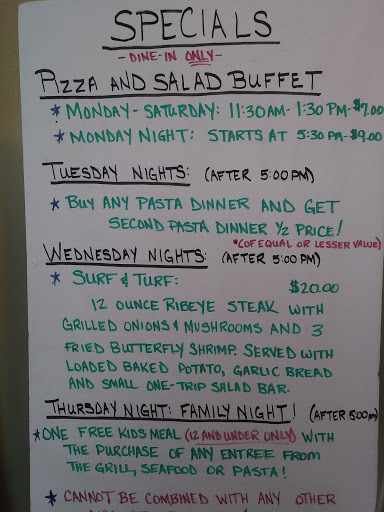 SPECIALS
- DINE-IN ONLY -
PIZZA AND SALAD BUFFET
* MONDAY - SATURDAY: 11:30AM - 1:30 PM - $7.00
* MONDAY NIGHT: STARTS AT 5:30 PM - $9.00
TUESDAY NIGHTS: (AFTER 5:00 PM)
* BUY ANY PASTA DINNER AND GET
SECOND PASTA DINNER 1/2 PRICE!
*(OF EQUAL OR LESSER VALUE)
WEDNESDAY NIGHTS: (AFTER 5:00 PM)
* SURF & TURF: $20.00
12 OUNCE RIBEYE STEAK WITH
GRILLED ONIONS & MUSHROOMS AND 3
FRIED BUTTERFLY SHRIMP. SERVED WITH
LOADED BAKED POTATO, GARLIC BREAD
AND SMALL ONE-TRIP SALAD BAR.
THURSDAY NIGHT: FAMILY NIGHT! (AFTER 5:00 PM)
* ONE FREE KIDS MEAL (12 AND UNDER ONLY) WITH
THE PURCHASE OF ANY ENTREE FROM
THE GRILL, SEAFOOD OR PASTA!
* CANNOT BE COMBINED WITH ANY OTHER